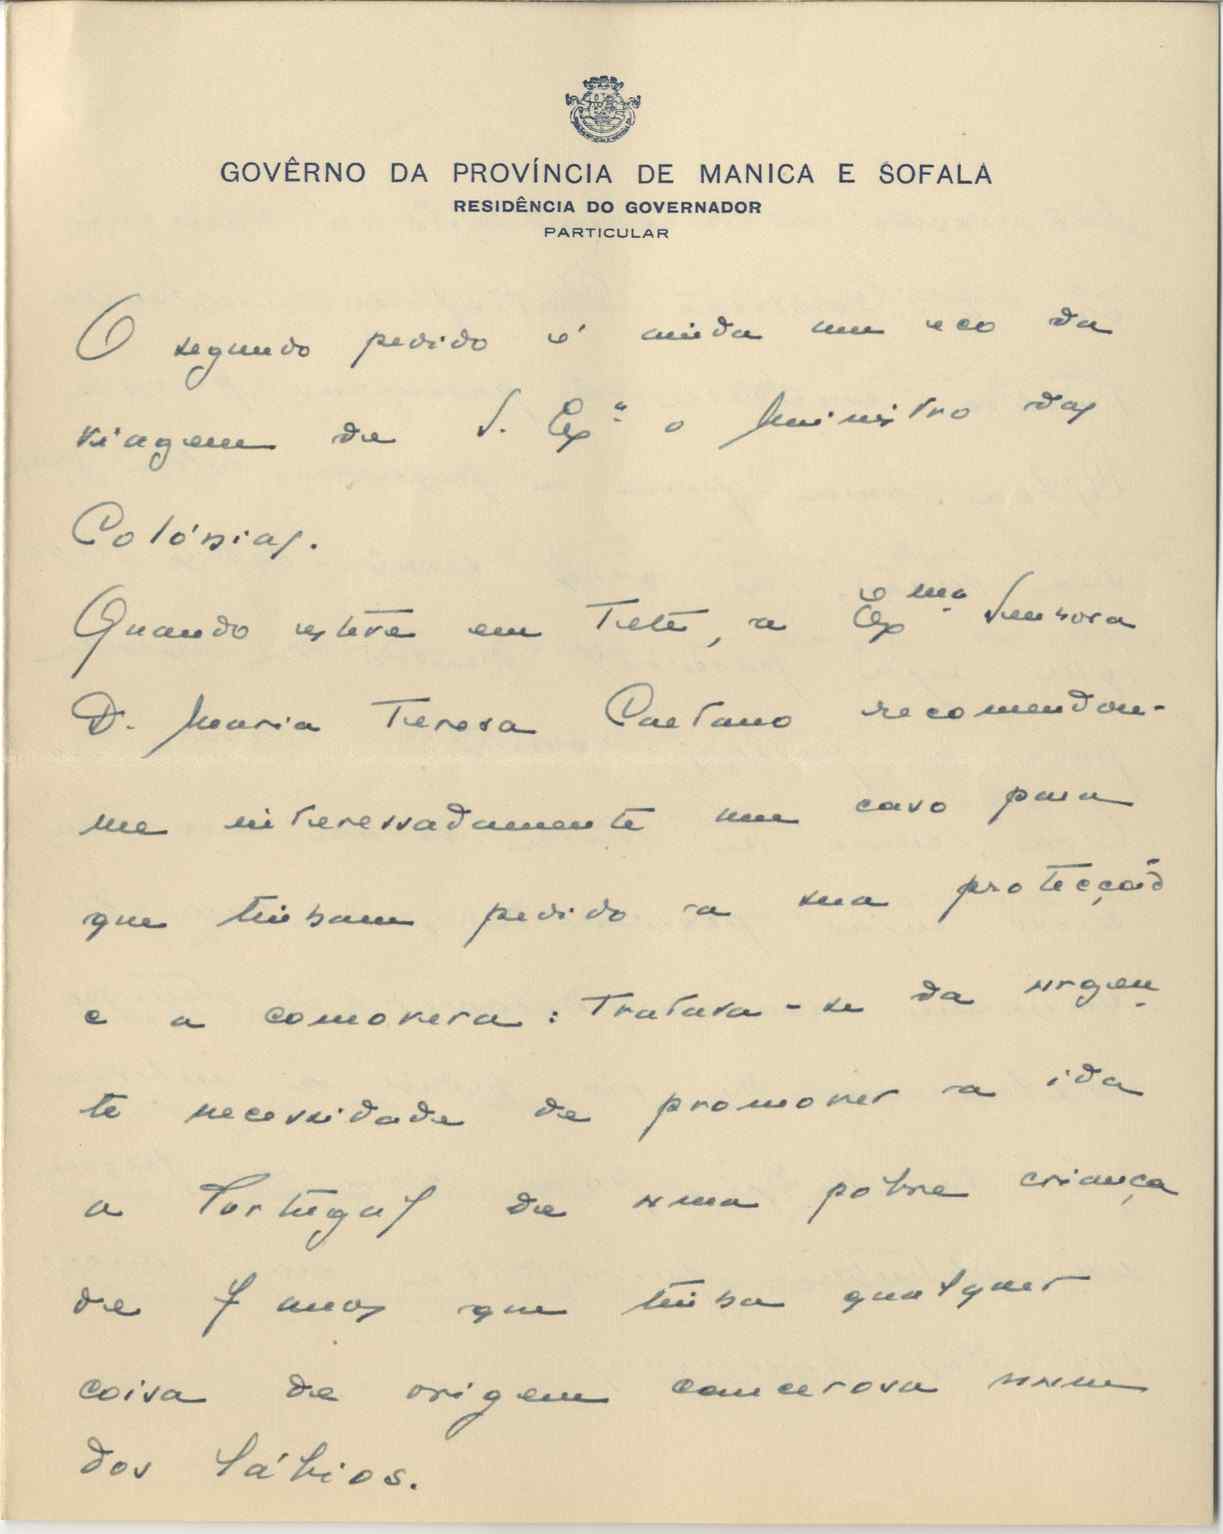 GOVÊRNO DA PROVÍNCIA DE MANICA E SOFALA
RESIDÊNCIA DO GOVERNADOR
PARTICULAR
O segundo pedido é ainda um eco da
viagem de S. Exª o Ministro das
Colónias.
Quando esteve em Tete, a Exma Senhora
D. Maria Teresa Caetano recomendou-
me interessadamente um caso para
que tinham pedido a sua protecção
e a comovera: Tratava-se da urgen
te necessidade de promover a ida
a Portugal de uma pobre criança
de 7 anos que tinha qualquer
coisa de origem cancerosa num
dos lábios.